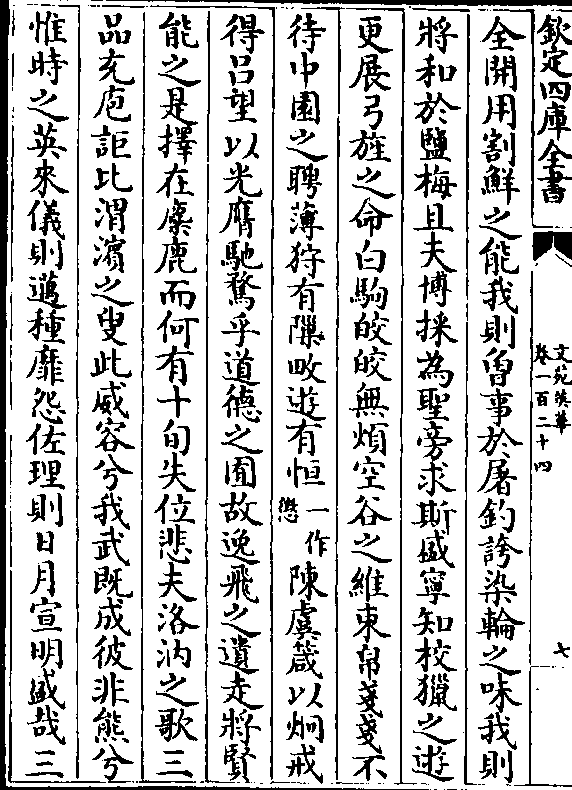 欽定四庫全書
文苑英華
卷一百二十四
七
全開用割鮮之能我則曾事於屠釣誇染輪之味我則
將和於鹽梅且夫博採為聖旁求斯盛寧知校獵之遊
更展弓旌之命白駒皎皎無煩空谷之維束帛戔戔不
待中園之聘薄狩有隟畋遊有恒一作愆陳虞箴以炯戒
得吕望以光膺馳騖乎道德之囿故逸飛之遺走將賢
能之是擇在麋鹿而何有十旬失位悲夫洛汭之歌三
品充庖詎比渭濱之叟此威容兮我武既成彼非熊兮
惟時之英來儀則邁種靡怨佐理則日月宣明盛哉三